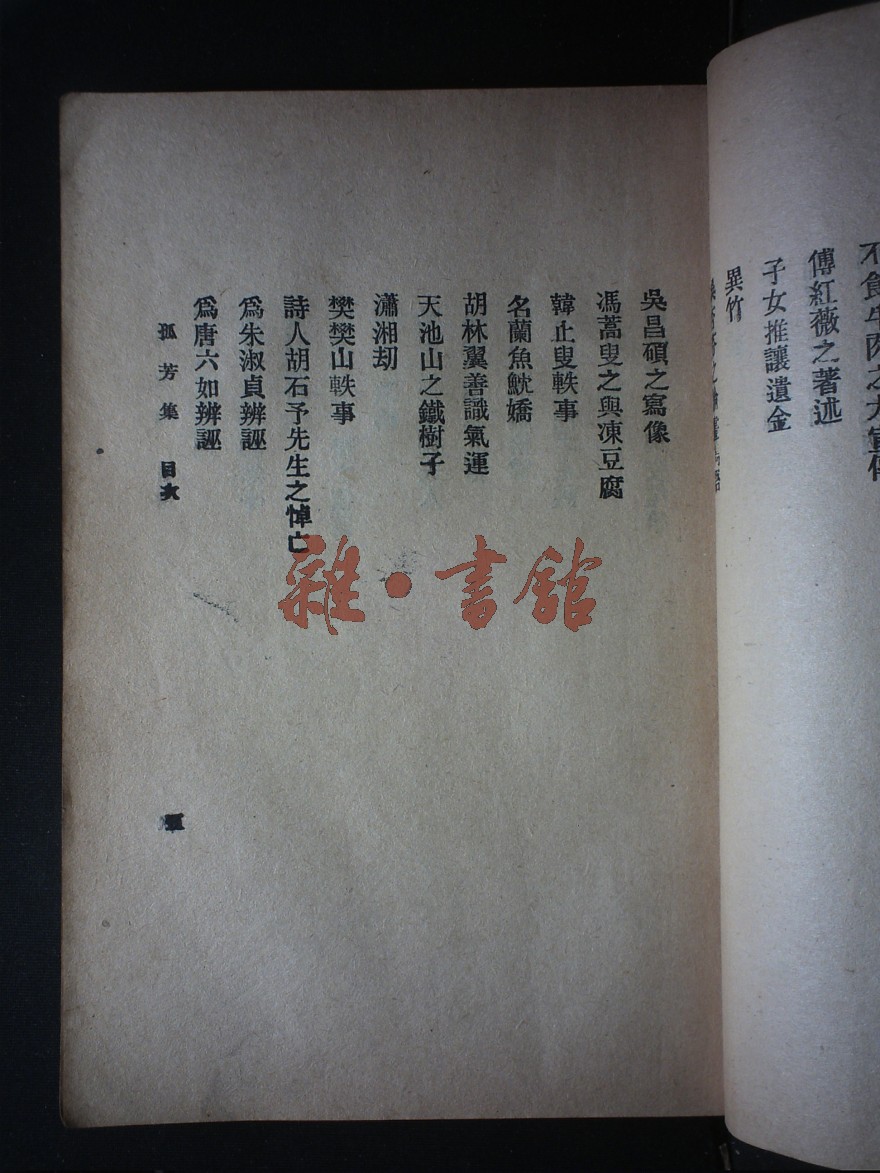 傅紅薇之著述
子女推讓遺金
異竹
吳昌碩之寫像
馮蒿叟之與凍豆腐
韓止叟軼事
名蘭魚魫嬌
胡林翼善識氣運
天池山之鐵樹子
瀟湘刧
樊樊山軼事
詩人胡石予先生之悼亡
為朱淑貞辨誣
為唐六如辨誣
孤芳集 目次
雜·書館